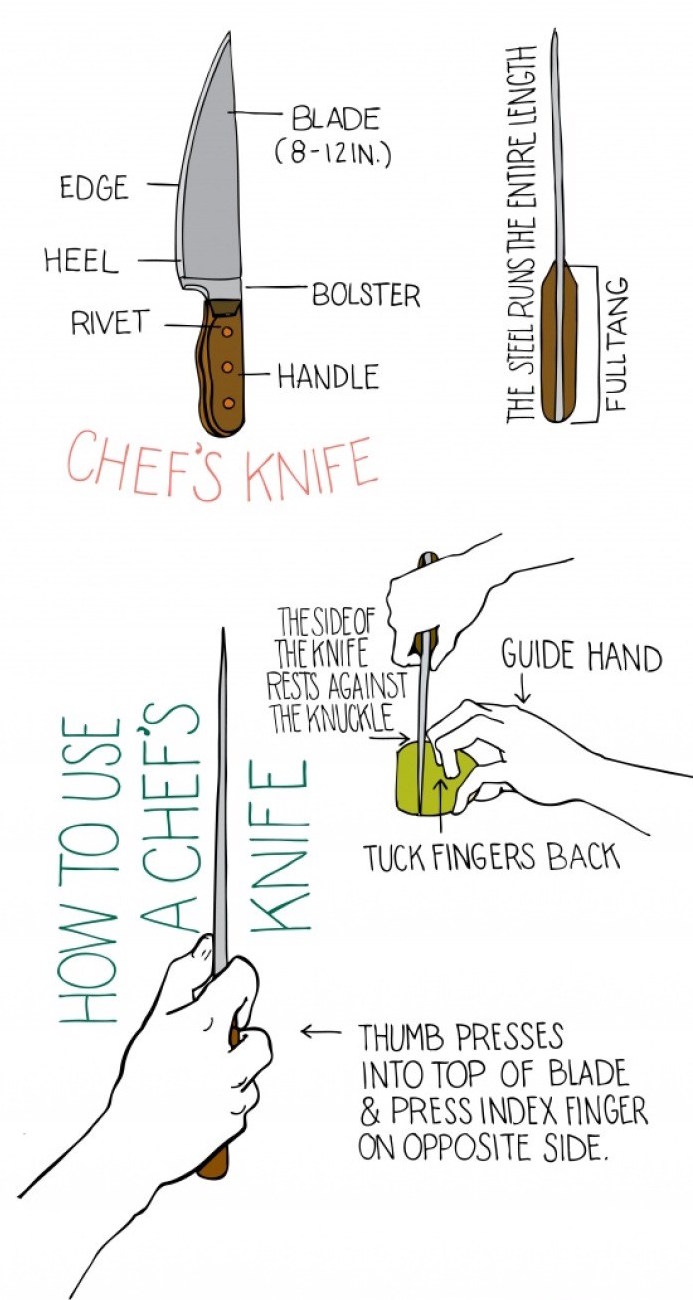 BLADE
(8-12IN.)
EDGE
HEEL
BOLSTER
RIVET
HANDLE
CHEF'S KNIFE
THE STEEL RUNS THE ENTIRE LENGTH
FULL TANG
THE SIDE OF
THE KNIFE
RESTS AGAINST
THE KNUCKLE
GUIDE HAND
TUCK FINGERS BACK
HOW TO USE
A CHEF'S
KNIFE
THUMB PRESSES
INTO TOP OF BLADE
& PRESS INDEX FINGER
ON OPPOSITE SIDE.